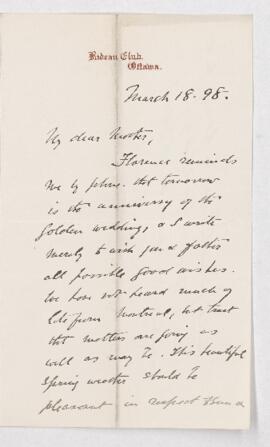 Rideau Club.
Ottawa.
March 18. 98.
My dear Mother,
Florence reminds
me by phone that tomorrow
is the anniversary of the
Golden wedding, & I write
merely to wish you & father
all possible good wishes.
We have not heard much of
late from Montreal, but trust
that matters are going as
well as may be. This beautiful
Spring weather should be
pleasant in respect